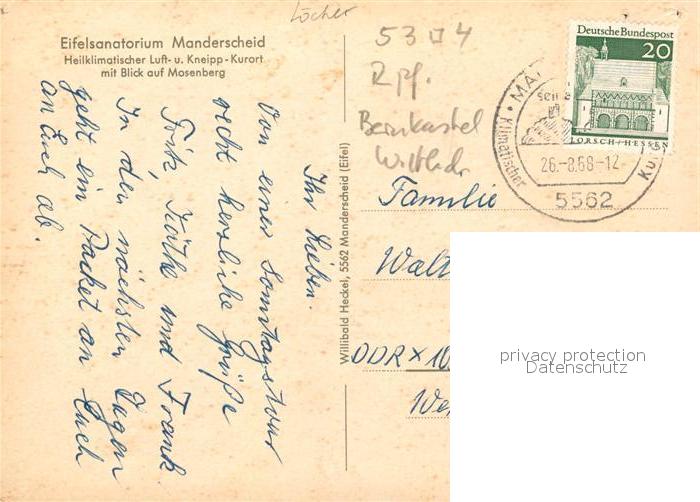 Löcher
Eifelsanatorium Manderscheid
Heilklimatischer Luft- u. Kneipp-Kurort
mit Blick auf Mosenberg
Ihr Lieben.
Von einer Sonntagstour
recht herzliche Grüße
Fritz, Käthe und Frank.
In den nächsten Tagen
geht ein Packet an Euch
an Euch ab.
Willibald Heckel, 5562 Manderscheid (Eifel)
53 4
Rpf.
Bernkastel
Wittlich
Deutsche Bundespost
20
LORSCH/HESSEN
MA
Klimatischer Kur
26.-8.68-12
5562
Familie
Walt
DDR X 10
We
privacy protection
Datenschutz